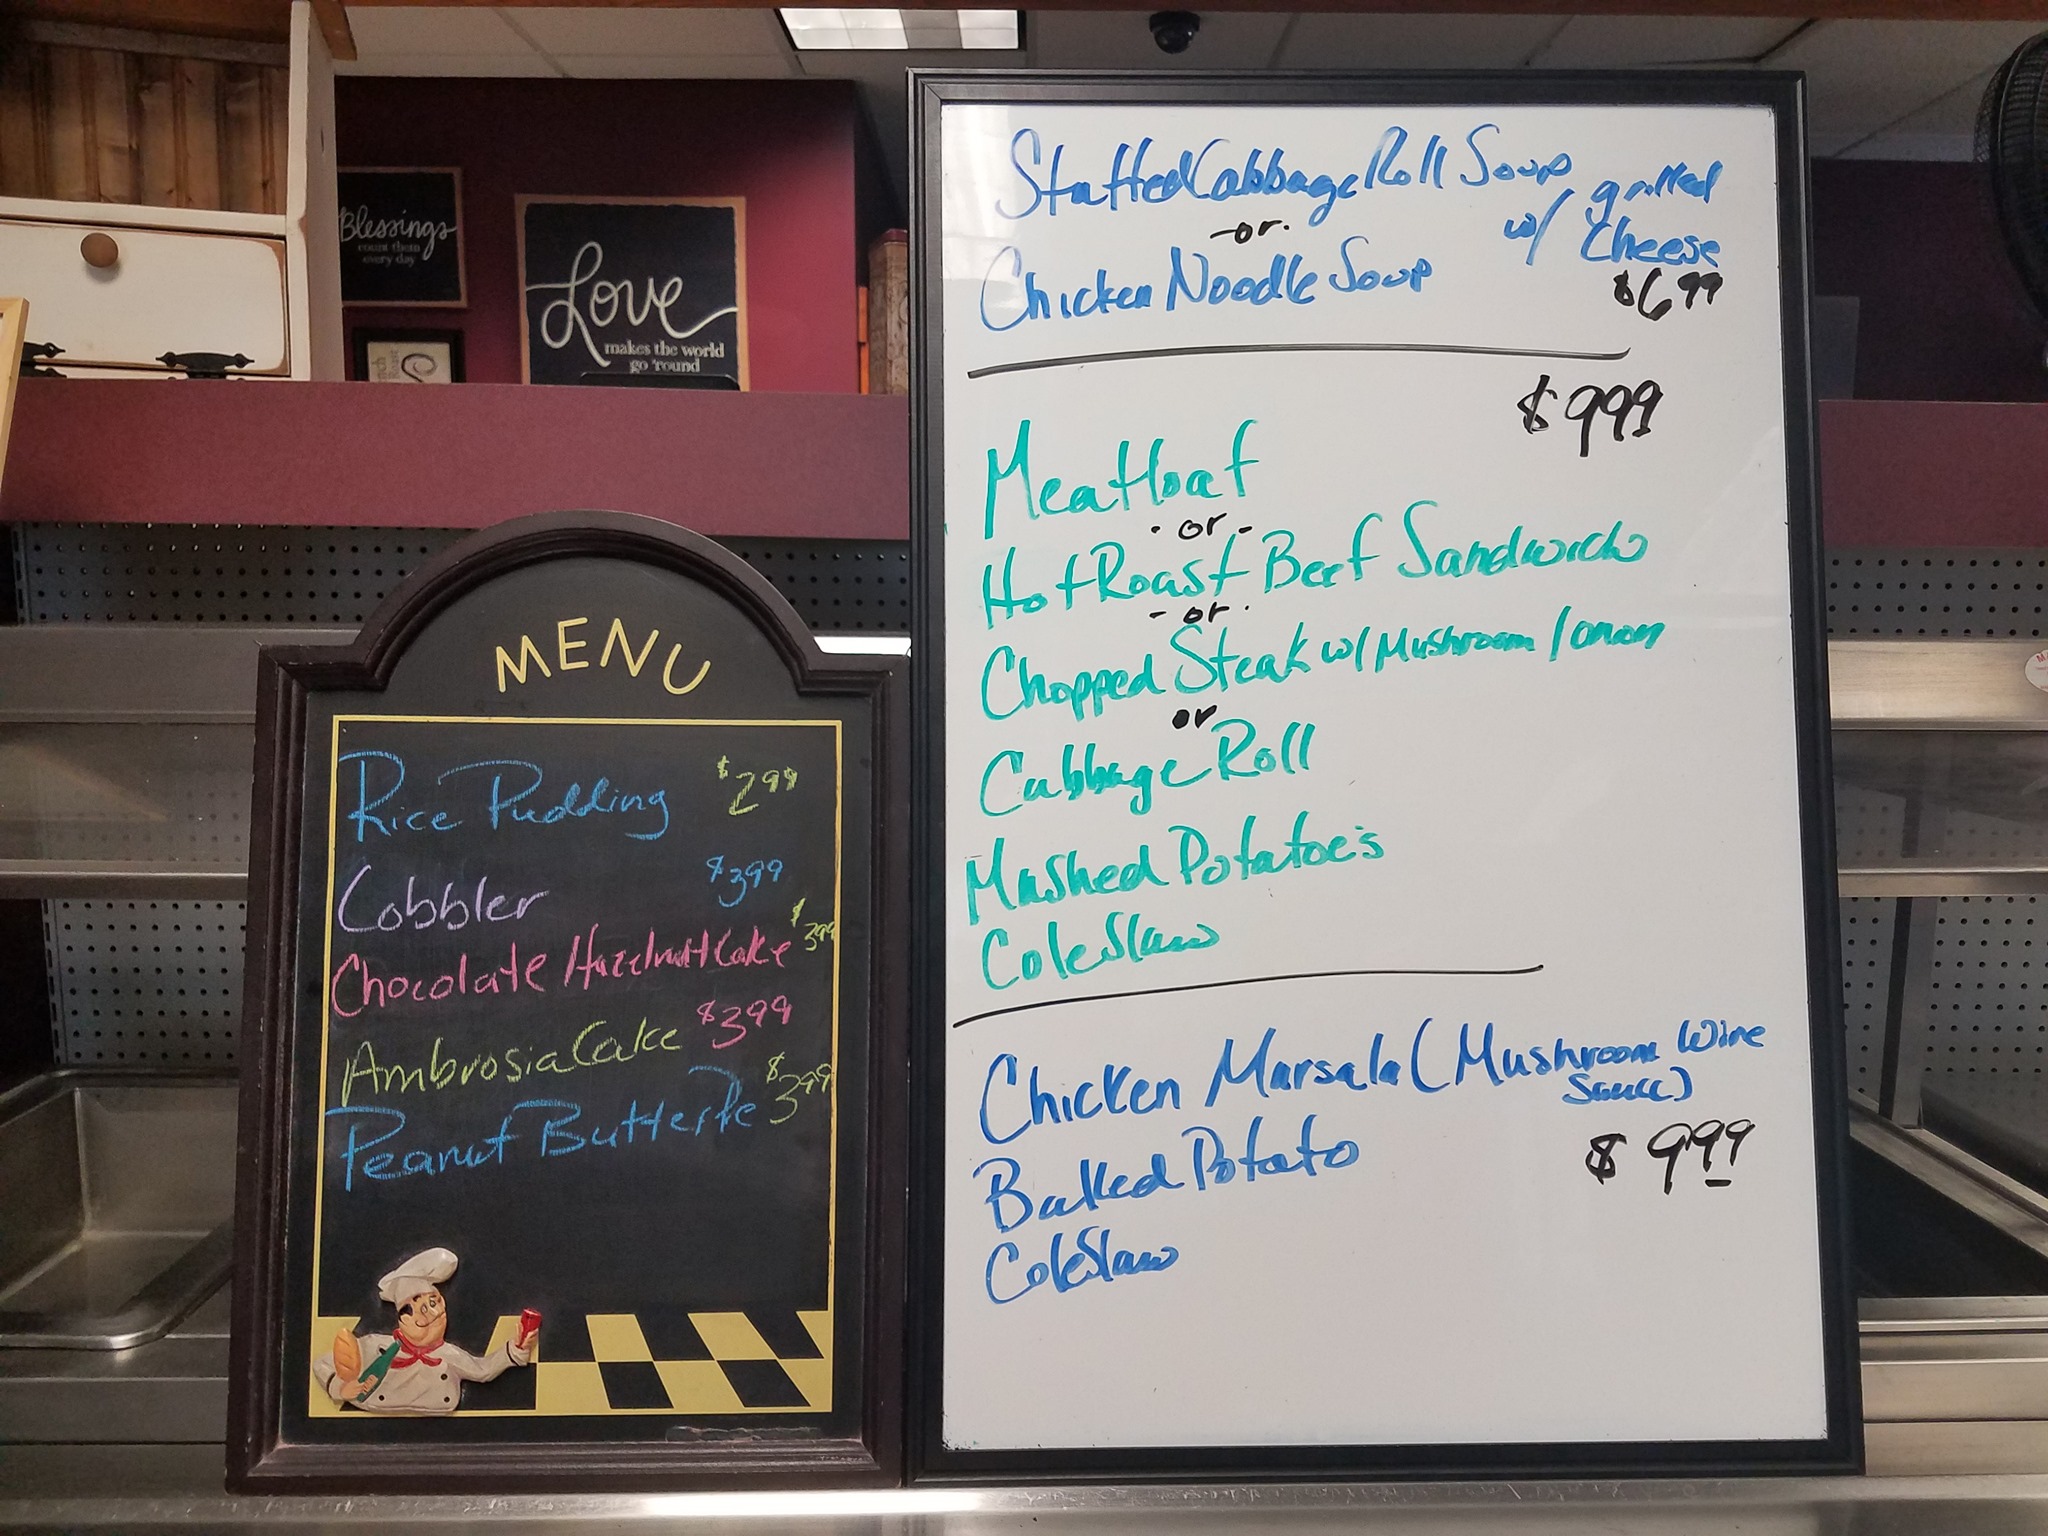 Blessings
count them
every day
Love
makes the world
go 'round
MENU
Rice Pudding $2.99
Cobbler $3.99
Chocolate Hazelnut Cake $3.99
Ambrosia Cake $3.99
Peanut Butter Pie $3.99
Stuffed Cabbage Roll Soup
-or-
Chicken Noodle Soup
w/ grilled
Cheese
$6.99
$9.99
Meatloaf
-or-
Hot Roast Beef Sandwich
-or-
Chopped Steak w/ Mushroom/onion
or
Cabbage Roll
Mashed Potatoe's
ColeSlaw
Chicken Marsala (Mushroom Wine
Sauce)
Baked Potato $9.99
ColeSlaw